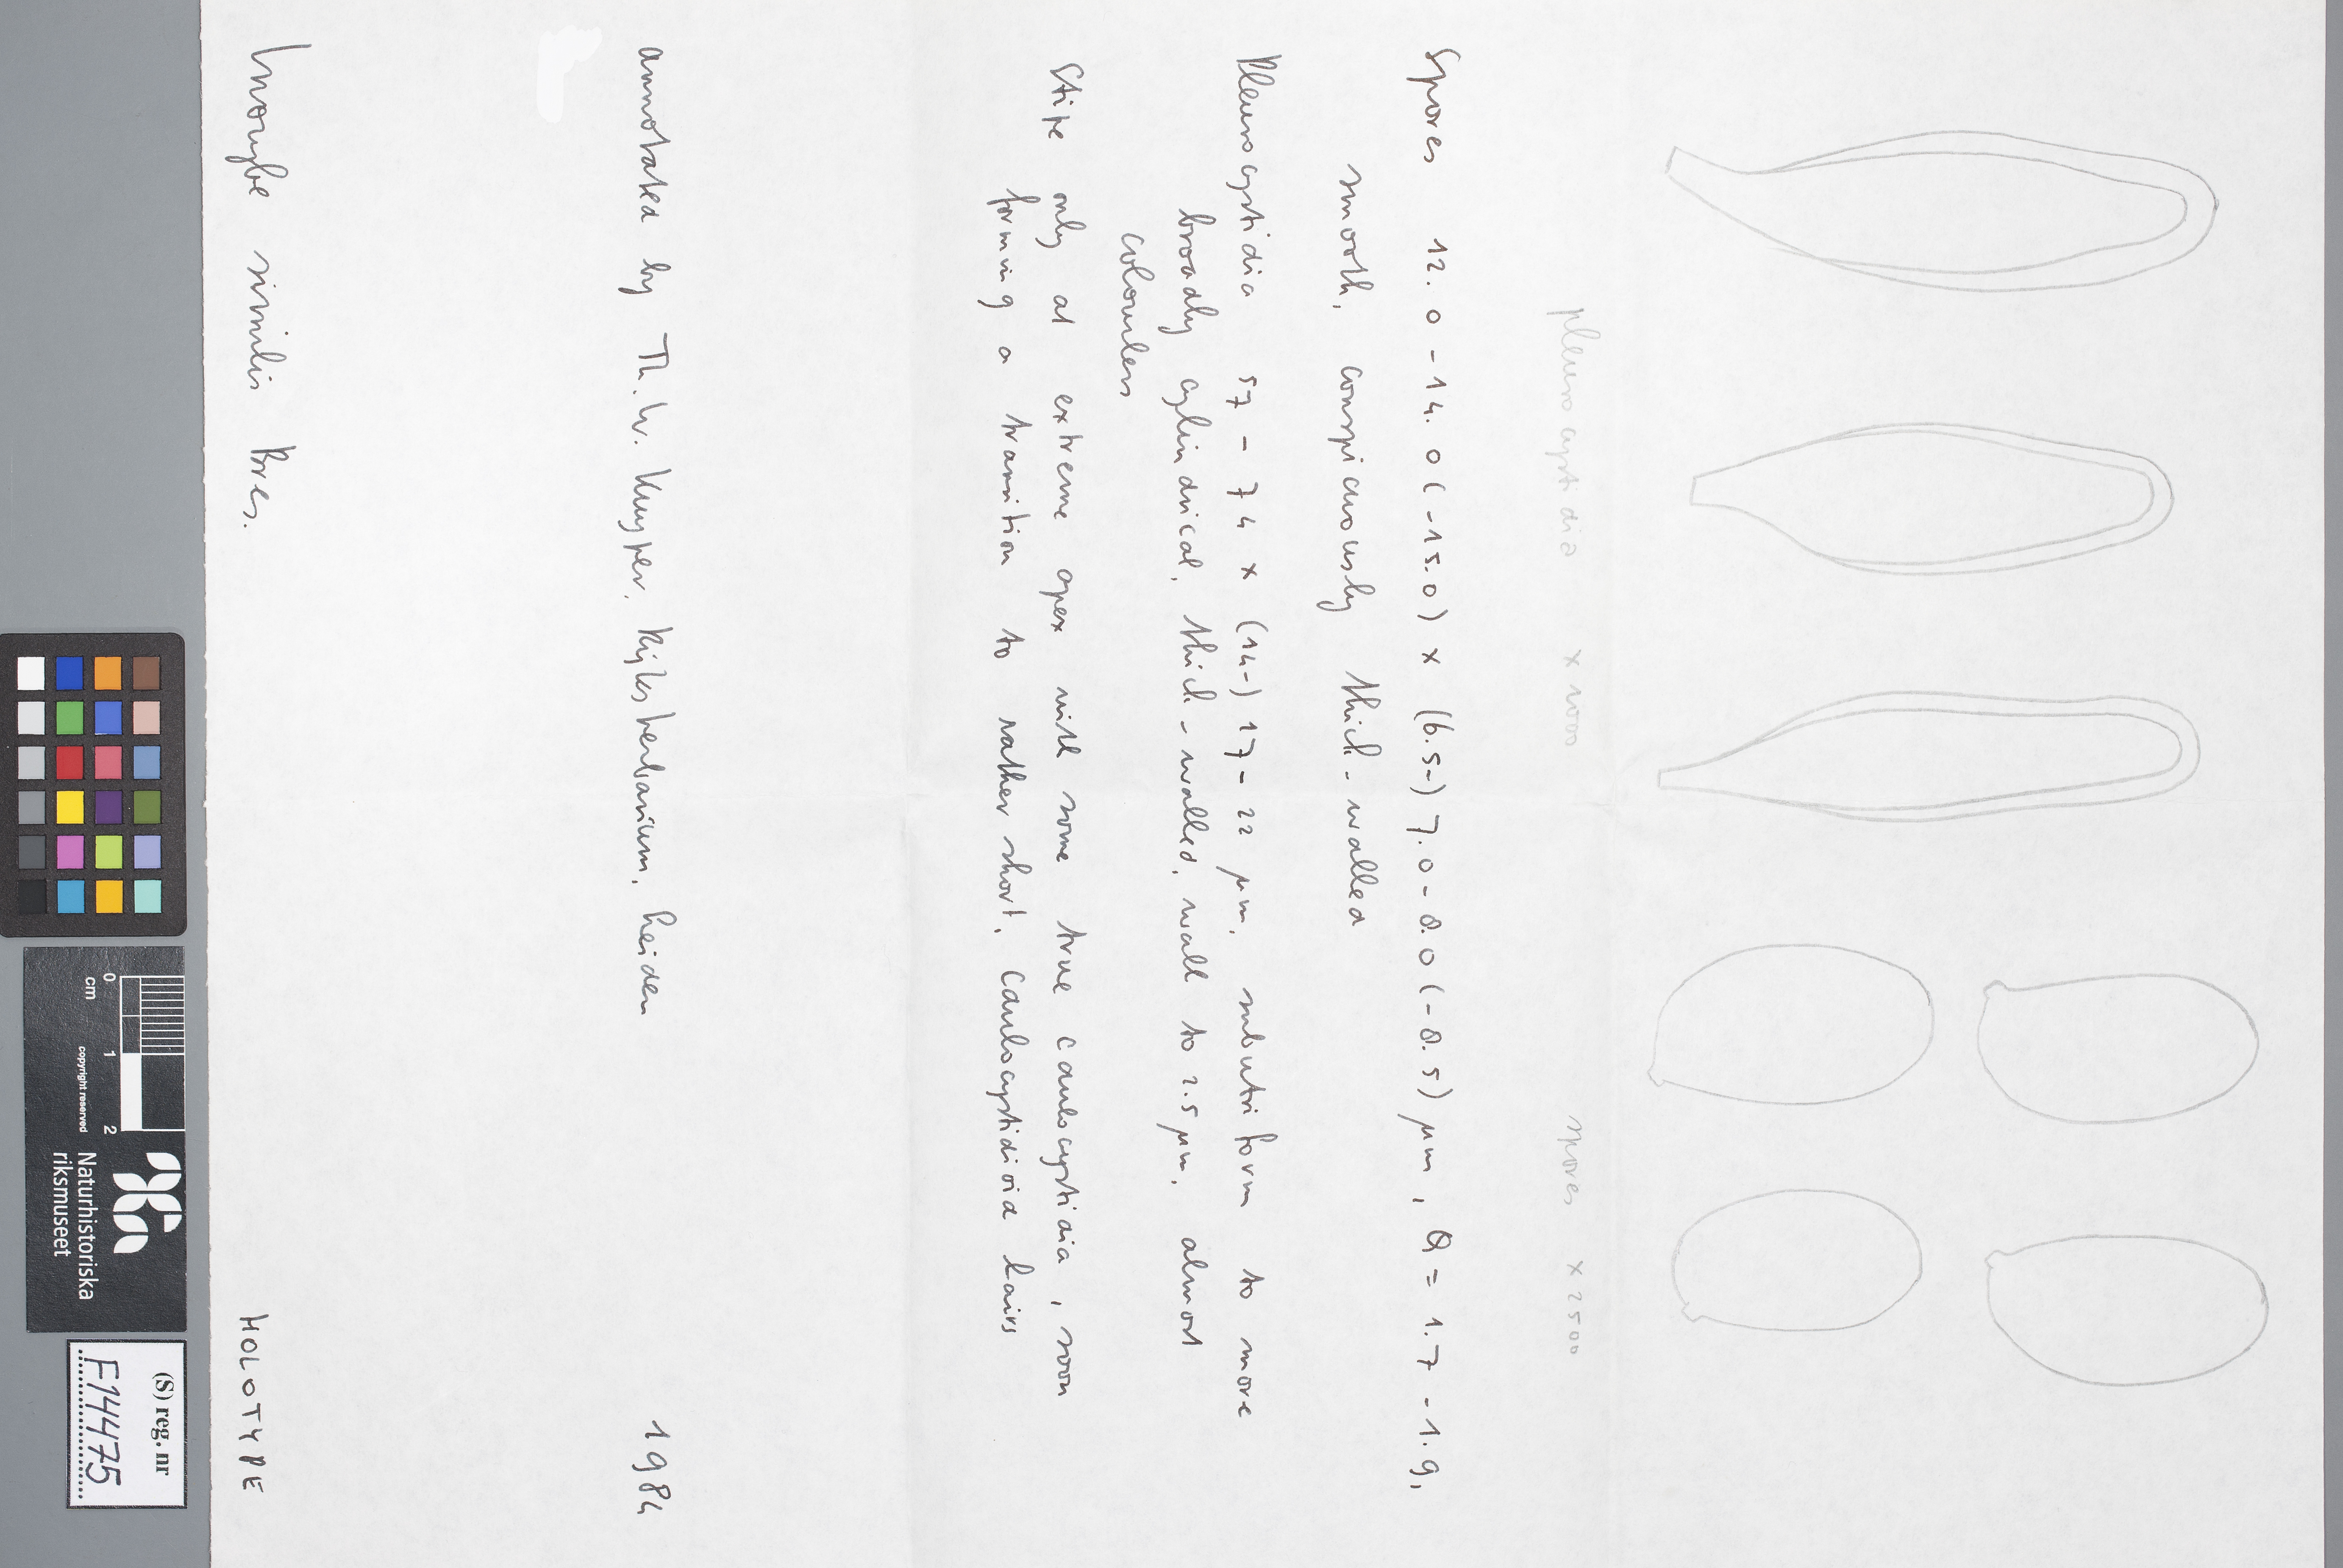 pleurocystidia x 1000
spores x 2500
Spores 12.0 - 14.0 (-15.0) x (6.5-) 7.0 - 8.0 (-8.5) µm, Q = 1.7 - 1.9,
smooth, conspicuously thick-walled
Pleurocystidia 57 - 74 x (14-) 17 - 22 µm, subutriform to more
broadly cylindrical, thick-walled, wall to 2.5 µm, almost
colourless
Stipe only at extreme apex with some true caulocystidia, soon
forming a transition to rather short, caulocystidioid hairs
annotated by Th. W. Kuyper, Rijksherbarium, Leiden 1984
Inocybe similis Bres. HOLOTYPE
0 1 2
cm
copyright reserved
Naturhistoriska
riksmuseet
(S) reg. nr
F144475